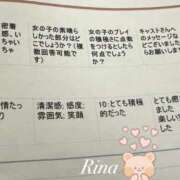 密着
感、い
ちゃい
ちゃ
女の子の素晴ら
しかった部分はど
こでしょうか?(複
数回答可能です)
女の子のプレイ
の積極さに点数
をつけるとしたら
何点でしょうか?
キャストさんへ
のメッセージな
どございました
らお願いします
情たっ
り
清潔感; 態度;
雰囲気; 笑顔
10:とても積極
的だった
Rina